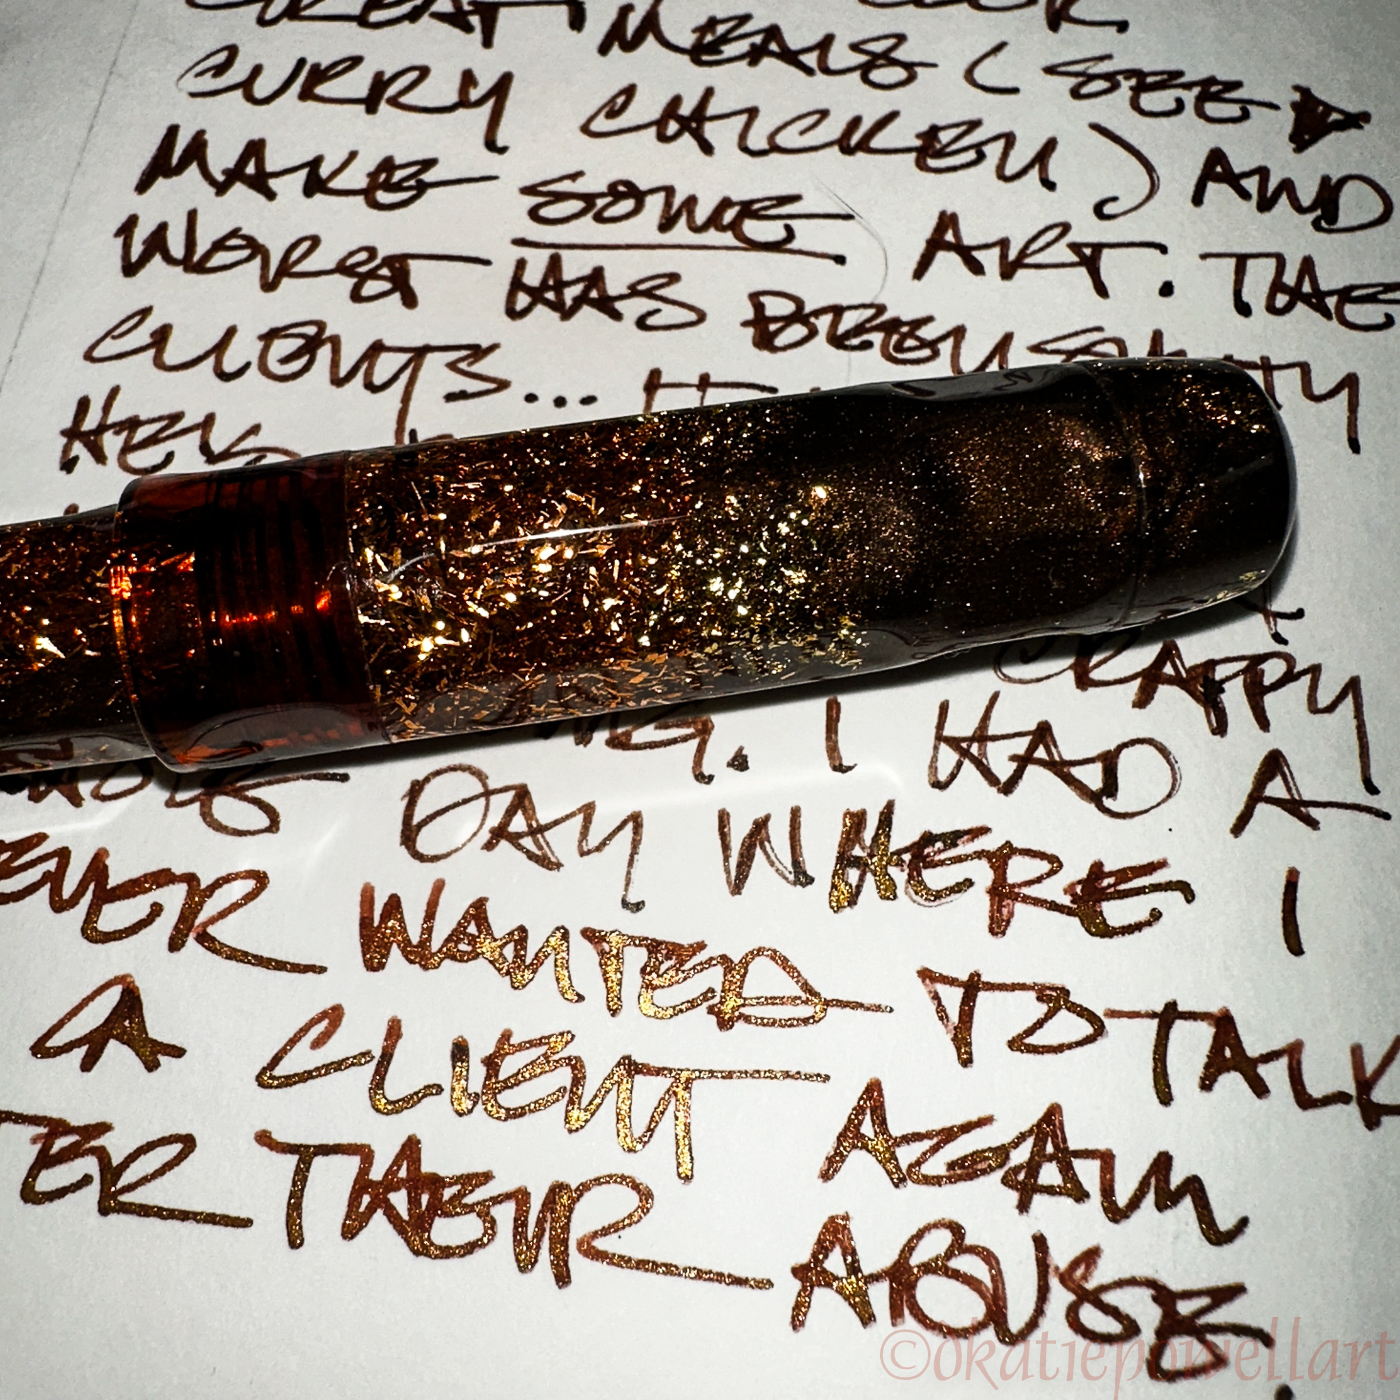 GREAT MEALS (SEE
CURRY CHICKEN) AND
MAKE SOME ART. THE
WORST HAS BEEN
CLIENTS...
CRAPPY
I HAD A
DAY WHERE I
EVER WANTED TO TALK
A CLIENT AGAIN
TER THEIR ABUSE
©okatiepowellart